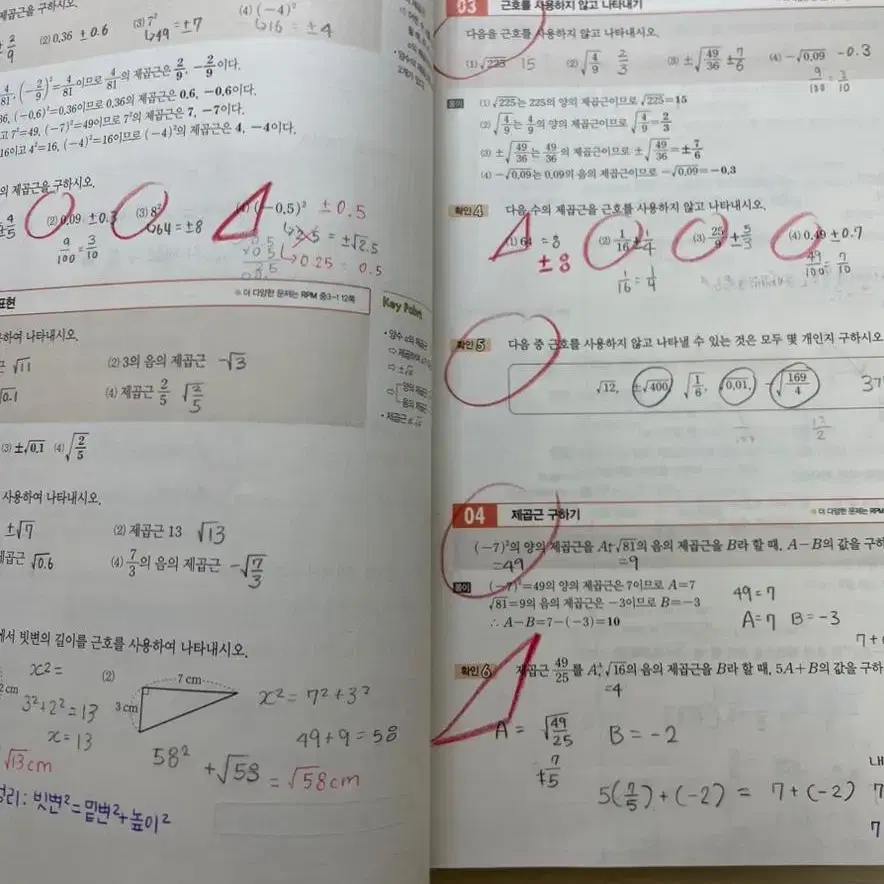 제곱근을 구하시오.
(2) 0.36 ±0.6
(3) 7² = ±7
↳49
(4) (-4)² = ±4
↳16
(-2/9)²=4/81이므로 4/81의 제곱근은 2/9, -2/9이다.
(-0.6)²=0.36이므로 0.36의 제곱근은 0.6, -0.6이다.
고 7²=49, (-7)²=49이므로 7²의 제곱근은 7, -7이다.
16이고 4²=16, (-4)²=16이므로 (-4)²의 제곱근은 4, -4이다.
의 제곱근을 구하시오.
(2) 0.09 ±0.3
9/100 = 3/10
(3) 8²
↳64 = ±8
(-0.5)² ±0.5
↳2.5 = ±√2.5
↳0.25 = 0.5
표현
더 다양한 문제는 RPM 중3-1 12쪽
Key Point
하여 나타내시오.
√11
(2) 3의 음의 제곱근 -√3
√0.1
(4) 제곱근 2/5 √2/5
(3) ±√0.1 (4) √2/5
사용하여 나타내시오.
±√7
(2) 제곱근 13 √13
제곱근 √0.6
(4) 7/3의 음의 제곱근 -√7/3
에서 빗변의 길이를 근호를 사용하여 나타내시오.
x²=
2 cm
3²+2²=13
x=13
√13cm
(2)
7 cm
3 cm
x² = 7²+3²
49+9=58
58²
+√58 = √58cm
정리: 빗변²=밑변²+높이²
03 근호를 사용하지 않고 나타내기
다음을 근호를 사용하지 않고 나타내시오.
(1) √225 15
(2) √4/9 2/3
(3) ±√49/36 ±7/6
(4) -√0.09 -0.3
9/100 = 3/10
풀이 (1) √225는 225의 양의 제곱근이므로 √225=15
(2) √4/9는 4/9의 양의 제곱근이므로 √4/9=2/3
(3) ±√49/36는 49/36의 제곱근이므로 ±√49/36=±7/6
(4) -√0.09는 0.09의 음의 제곱근이므로 -√0.09=-0.3
확인 4 다음 수의 제곱근을 근호를 사용하지 않고 나타내시오.
(1) 64 = 8
±8
(2) 1/16 ±1/4
1/16 = 1/4
(3) 25/9 ±5/3
(4) 0.49 ±0.7
49/100 = 7/10
확인 5 다음 중 근호를 사용하지 않고 나타낼 수 있는 것은 모두 몇 개인지 구하시오
√12, ±√400, √1/6, √0.01, -√169/4
13/2
04 제곱근 구하기
더 다양한 문제는 RPM
(-7)²의 양의 제곱근을 A, √81의 음의 제곱근을 B라 할 때, A-B의 값을 구하
=49
=9
풀이 (-7)²=49의 양의 제곱근은 7이므로 A=7
√81=9의 음의 제곱근은 -3이므로 B=-3
∴ A-B=7-(-3)=10
49=7
A=7 B=-3
확인 6 제곱근 49/25를 A, √16의 음의 제곱근을 B라 할 때, 5A+B의 값을 구하
=4
A = √49/25
7/5
B = -2
5(7/5)+(-2) = 7+(-2)